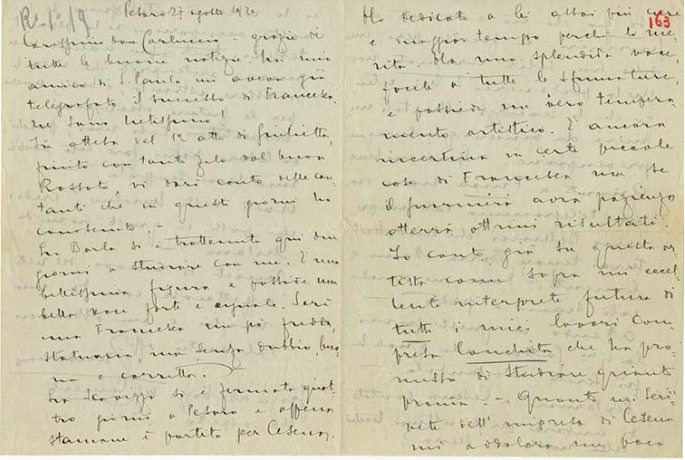 Pesaro 27 agosto 1920
Carissimo don Carluccio, grazie di
tutte le buone notizie. Un mio
amico di S. Paulo mi aveva già
telegrafato il successo di Francesca.
Ne sono lietissimo!
In attesa del 1º atto di Giulietta,
finito con tanto zelo dal buon
Rossato, vi darò conto delle can-
tanti che in questi giorni ho
conosciuto. –
La Barla si è trattenuta qui due
giorni a studiare con me. È una
bellissima figura e possiede una
bella voce forte e eguale. Sarà
una Francesca un po' fredda,
statuaria, ma senza dubbio, buo-
na e corretta.
La Scavizzi si è fermata quat-
tro giorni a Pesaro e appena
stamane è partita per Cesena.
163
Ho dedicato a lei assai più cure
e maggior tempo perchè lo me-
rita. Ha una splendida voce,
facile a tutte le sfumature,
e possiede un vero tempera-
mento artistico. È ancora
incertina in certe piccole
cose di Francesca ma se
il Guarnieri avrà pazienza
otterrà ottimi risultati.
Io conto già su questa ar-
tista come sopra un eccel-
lente interprete futura di
tutti i miei lavori com-
presa Conchita che ha pro-
messo di studiare quanto
prima. – Quanto mi scri-
vete dell'impresa di Cesena
mi addolora un poco